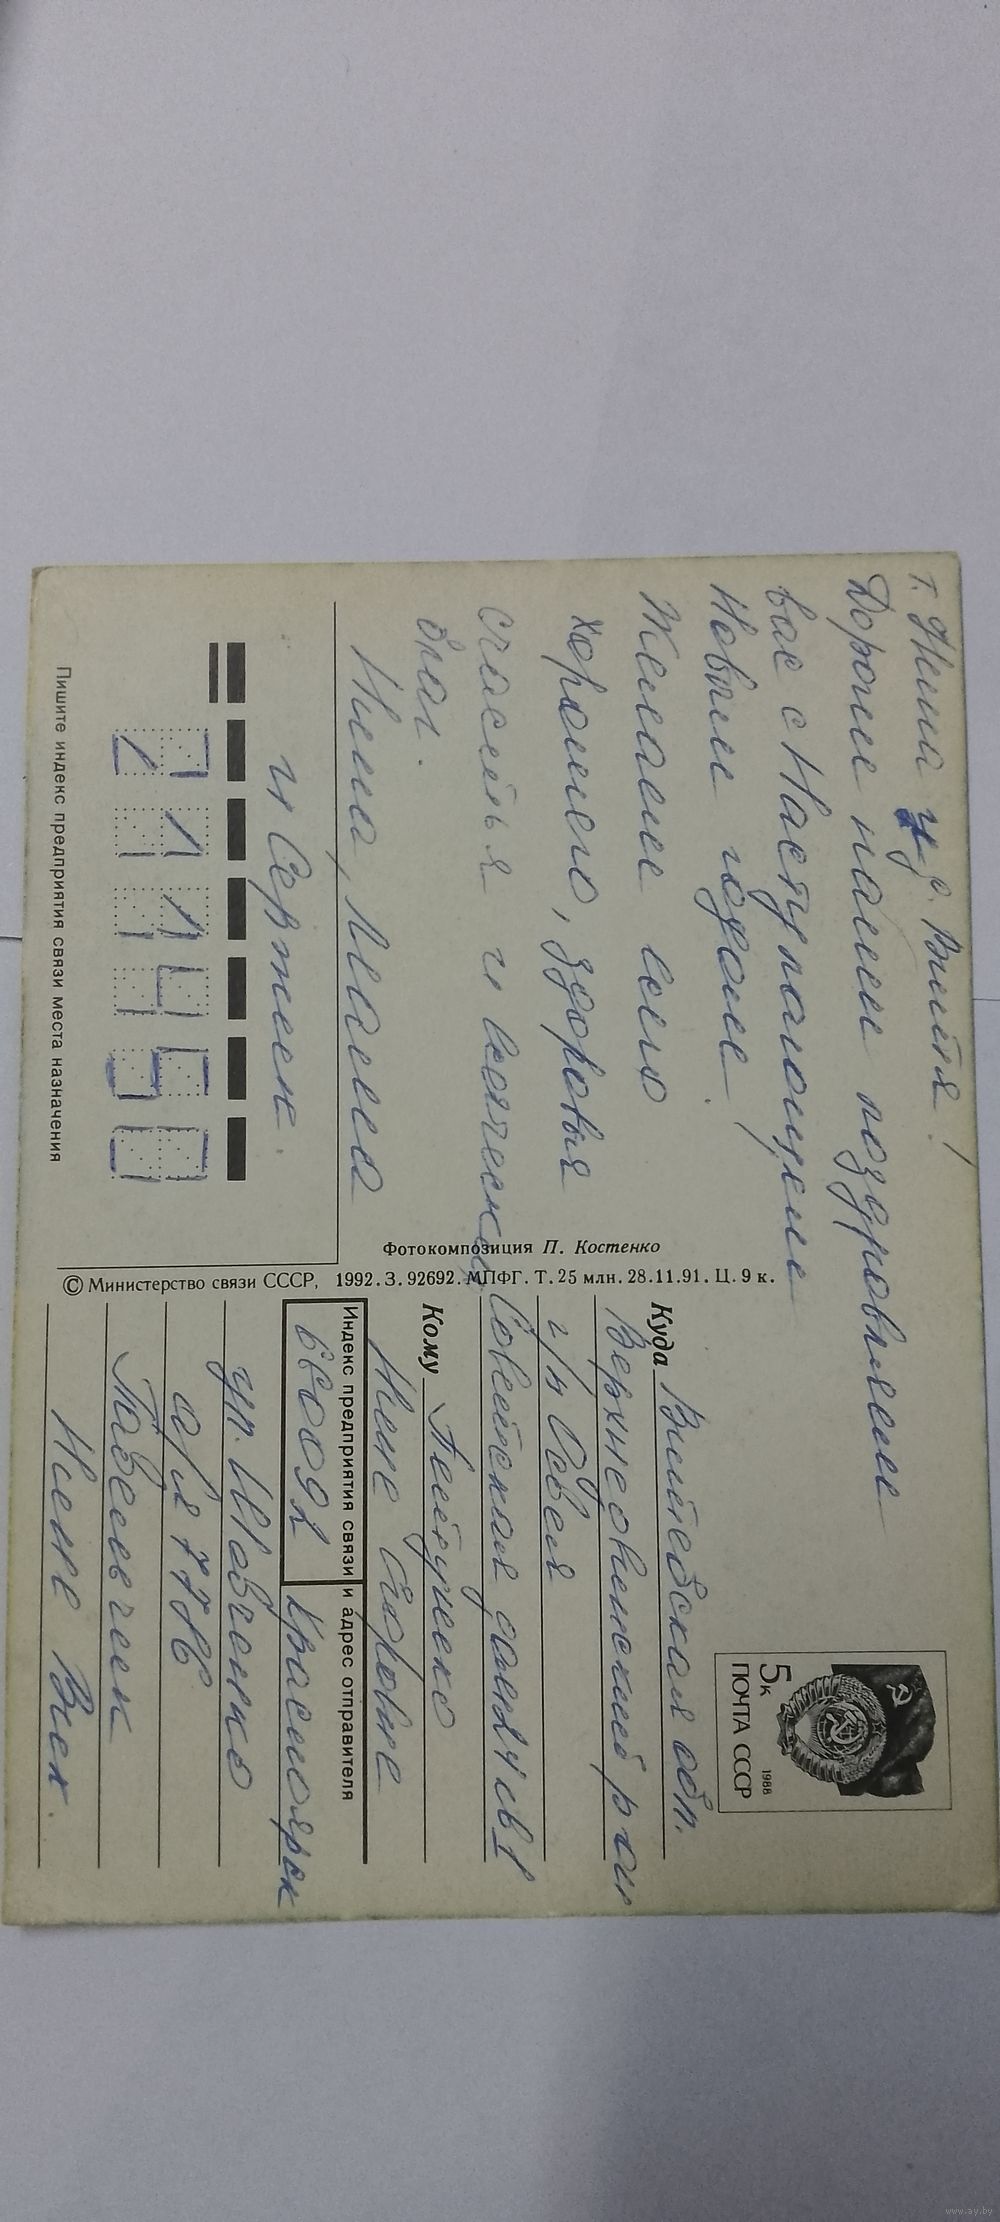 т. Нина и д. Витя!
Дорогие наши поздравляем
вас с Наступающим
Новым годом!
Желаем всего
хорошего, здоровья
счастья и всяческих
благ.
Нина, Маша
и Сержик.
211490
Пишите индекс предприятия связи места назначения
Фотокомпозиция П. Костенко
© Министерство связи СССР, 1992. З. 92692. МПФГ. Т. 25 млн. 28.11.91. Ц. 9 к.
5к
1988
ПОЧТА СССР
Куда Витебская обл.
Верхнедвинский р-он
г/п Освея
Советская дом кв 1
Кому
Нине
Индекс предприятия связи и адрес отправителя
Красноярск
ул.
Нине Вик.
www.ay.by